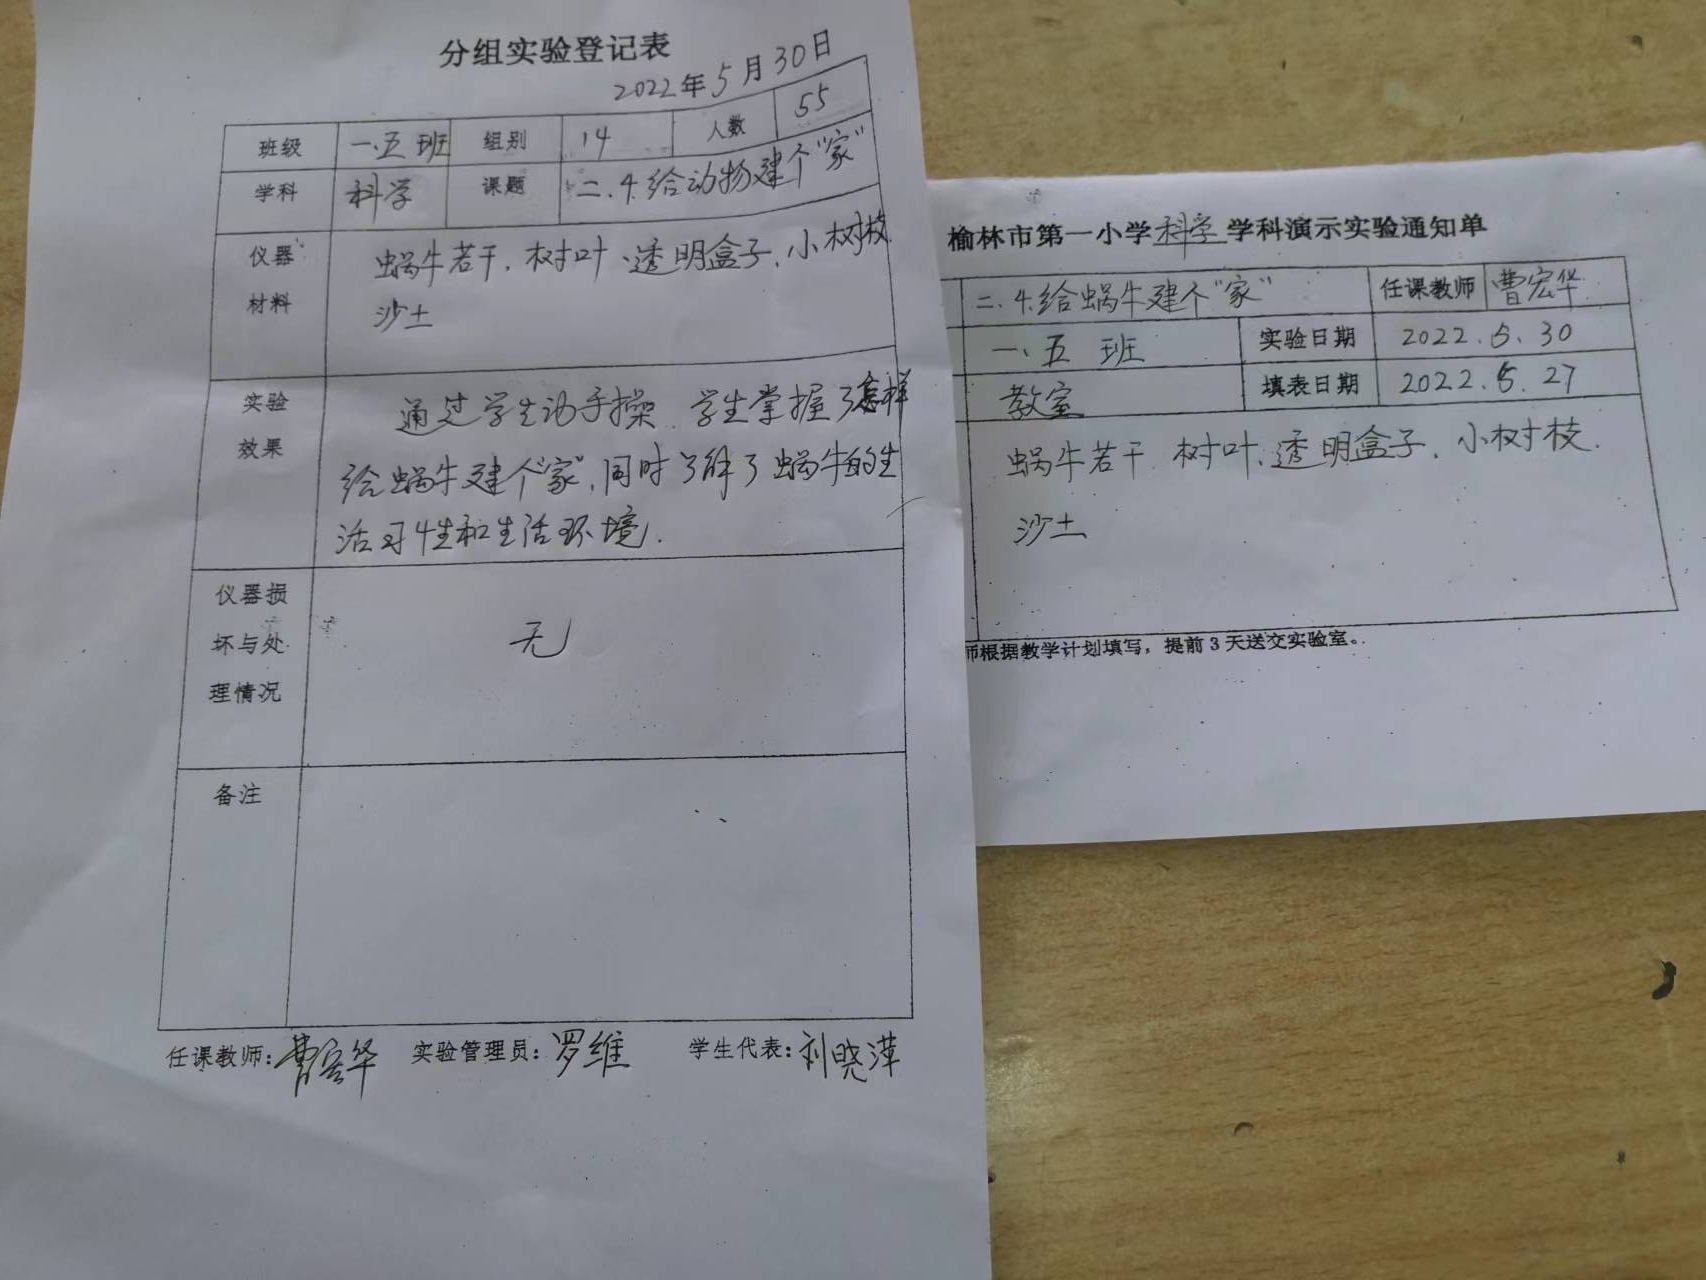 分组实验登记表
2022年5月30日
班级 一.五班 组别 14 人数 55
学科 科学 课题 二.4.给动物建个"家"
仪器材料 蜗牛若干、树叶、透明盒子、小树枝
沙土
实验效果 通过学生动手操、学生掌握了怎样
给蜗牛建个"家",同时了解了蜗牛的生
活习性和生活环境.
仪器损坏与处理情况 无
备注
任课教师:曹宏华 实验管理员:罗维 学生代表:刘晓萍
榆林市第一小学科学学科演示实验通知单
二.4.给蜗牛建个"家" 任课教师 曹宏华
一、五 班 实验日期 2022.5.30
教室 填表日期 2022.5.27
蜗牛若干、树叶、透明盒子、小树枝.
沙土
师根据教学计划填写，提前3天送交实验室。